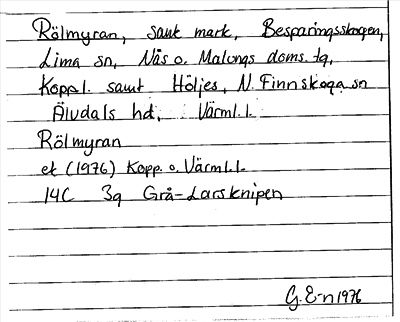 Rölmyran, sank mark, Besparingsskogen,
Lima sn, Nås o. Malungs doms. tg,
Koppl. samt Höljes, N. Finnskoga sn
Älvdals hd, Värml.l.
Rölmyran
ek (1976) Kopp. o. Värml.l.
14C 3g Grå-Larsknipen
G. E-n 1976